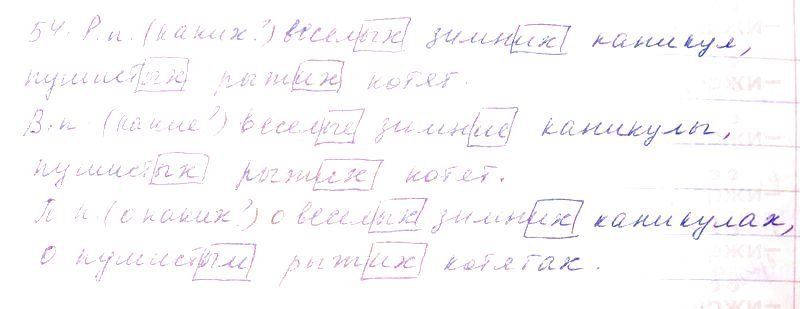 54. Р.п. (каких?) веселых зимних каникул,
пушистых рыжих котят.
В.п. (какие?) веселые зимние каникулы,
пушистых рыжих котят.
П.п. (о каких?) о веселых зимних каникулах,
о пушистым рыжих котятах.